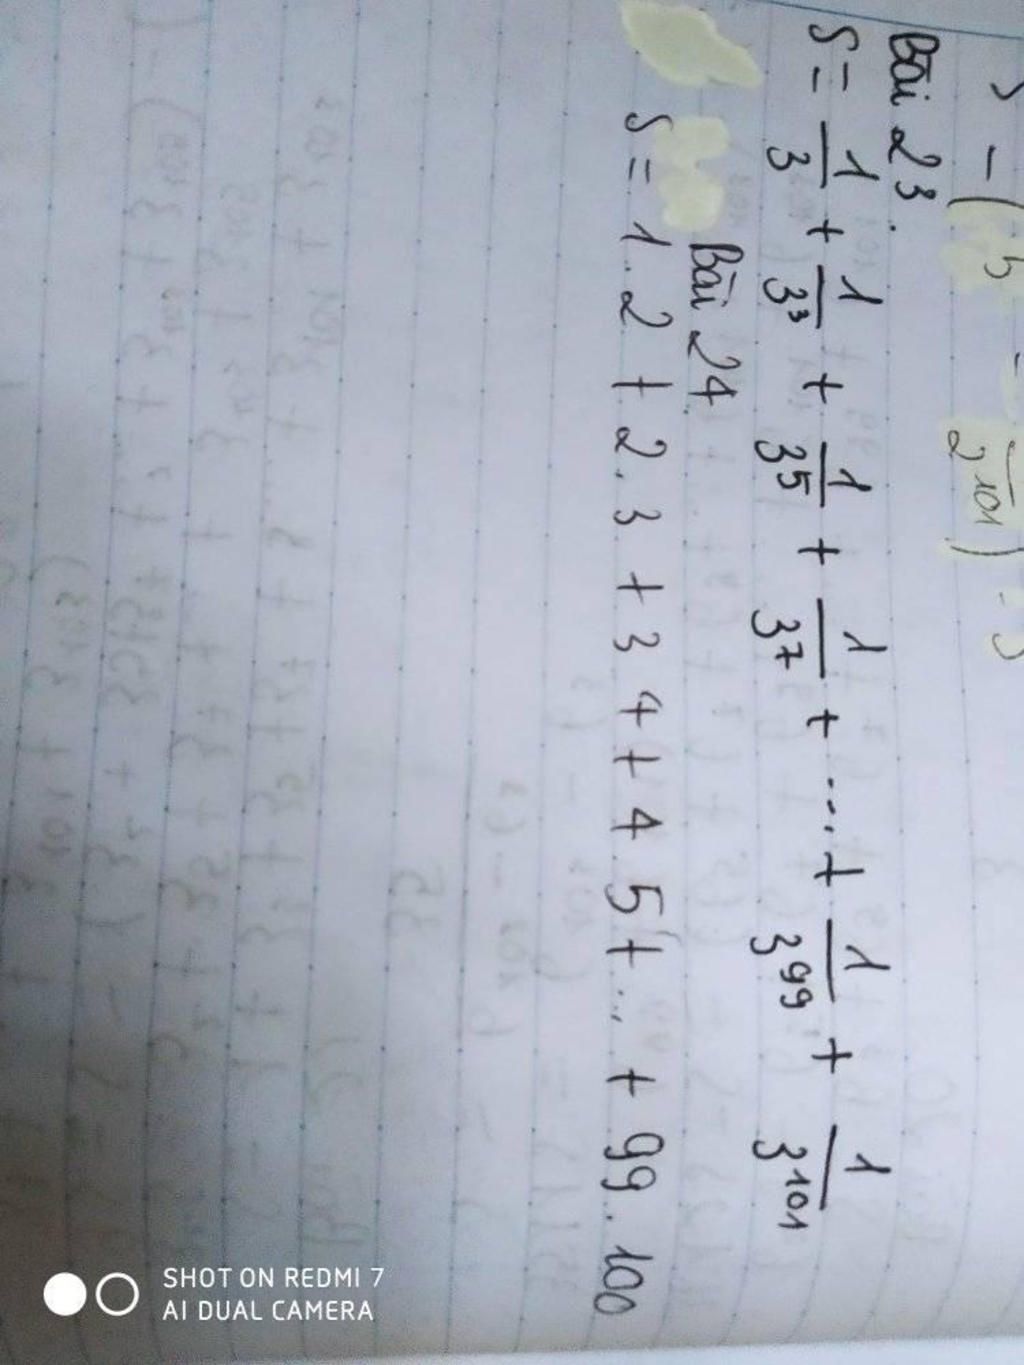 Bài 23.
S = 1/3 + 1/3³ + 1/3⁵ + 1/3⁷ + ... + 1/3⁹⁹ + 1/3¹⁰¹
Bài 24
S = 1.2 + 2.3 + 3 4 + 4 5 + ... + 99.100
SHOT ON REDMI 7
AI DUAL CAMERA